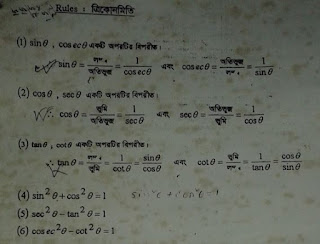 Rules : ত্রিকোণমিতি
(1) sin θ , cos ec θ একটি অপরটির বিপরীত।
sin θ = লম্ব / অতিভুজ = 1 / cos ec θ এবং cos ec θ = অতিভুজ / লম্ব = 1 / sin θ
(2) cos θ , sec θ একটি অপরটির বিপরীত।
∴ cos θ = ভূমি / অতিভুজ = 1 / sec θ এবং sec θ = ভূমি / অতিভুজ = 1 / cos θ
(3) tan θ , cot θ একটি অপরটির বিপরীত।
∴ tan θ = ভূমি / লম্ব = 1 / cot θ = sin θ / cos θ এবং cot θ = ভূমি / লম্ব = 1 / tan θ = cos θ / sin θ
(4) sin² θ + cos² θ = 1
(5) sec² θ − tan² θ = 1
(6) cos ec² θ − cot² θ = 1